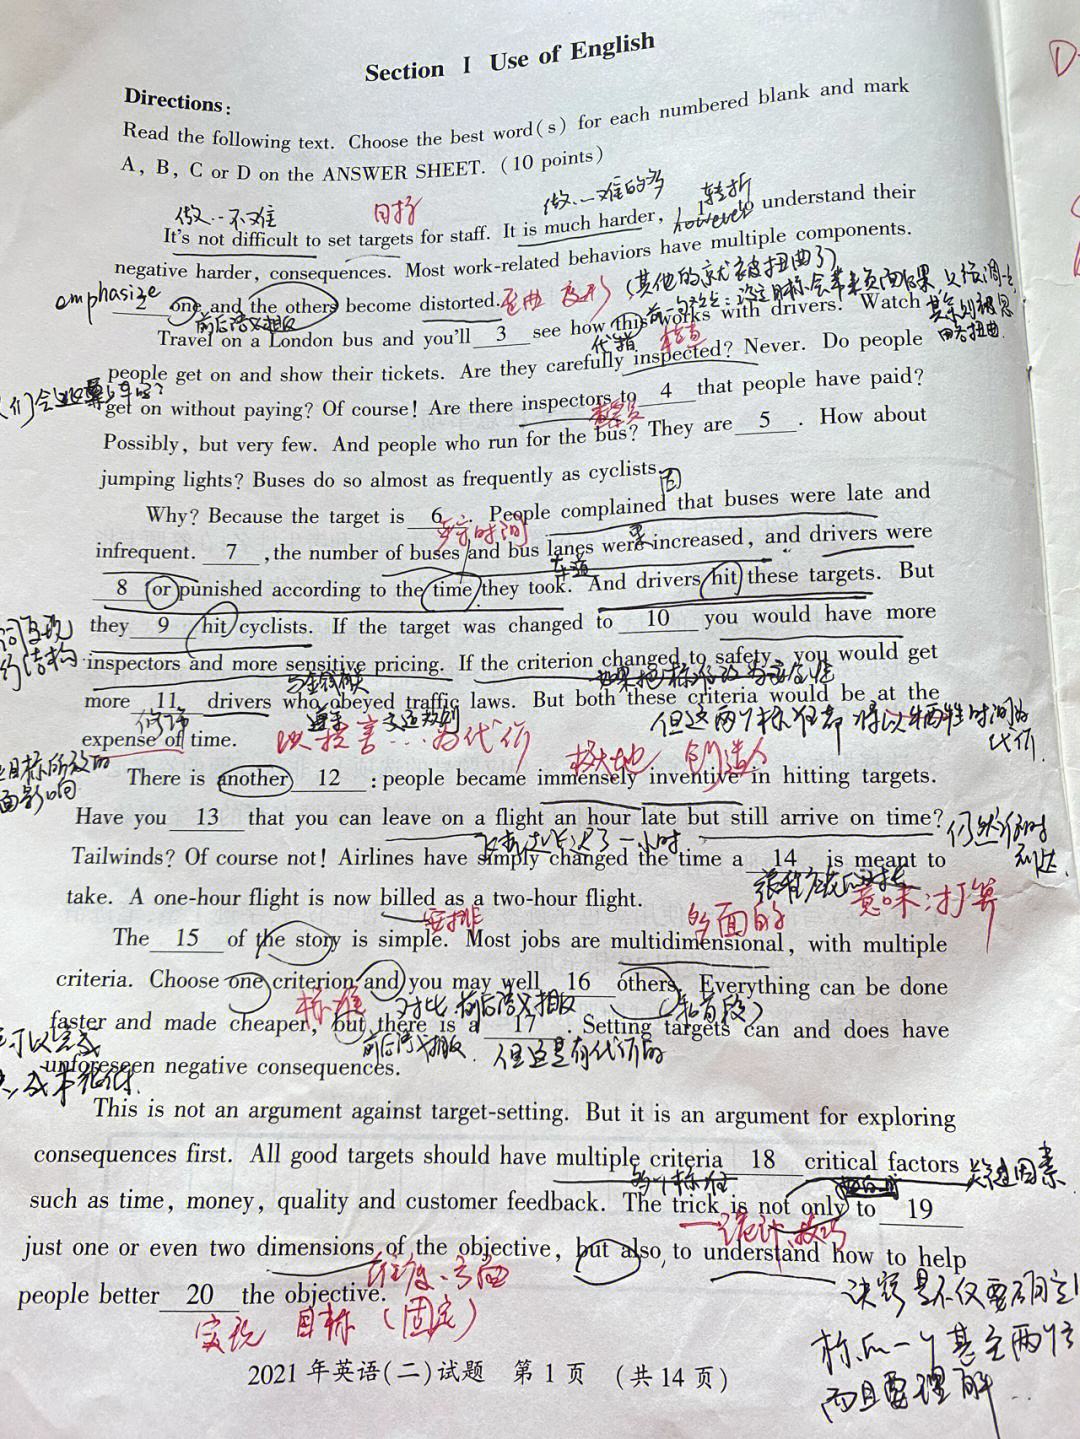 Section I Use of English
Directions:
Read the following text. Choose the best word(s) for each numbered blank and mark
A, B, C or D on the ANSWER SHEET. (10 points)
做…不难 目标 做…难的多 转折
It's not difficult to set targets for staff. It is much harder, 1 however understand their
negative harder, consequences. Most work-related behaviors have multiple components.
emphasize 2 one and the others become distorted. 歪曲 变形 (其他的就被扭曲了)
前后语义相反
Travel on a London bus and you'll 3 see how this works with drivers. Watch
代指 检查
people get on and show their tickets. Are they carefully inspected? Never. Do people
get on without paying? Of course! Are there inspectors to 4 that people have paid?
Possibly, but very few. And people who run for the bus? They are 5 . How about
jumping lights? Buses do so almost as frequently as cyclists.
Why? Because the target is 6 . People complained that buses were late and
infrequent. 7 , the number of buses and bus lanes were increased, and drivers were
车道
8 or punished according to the time they took. And drivers hit these targets. But
they 9 hit cyclists. If the target was changed to 10 you would have more
inspectors and more sensitive pricing. If the criterion changed to safety, you would get
more 11 drivers who obeyed traffic laws. But both these criteria would be at the
遵守 交通规则 但这两个标准都将以牺牲时间为
代价
expense of time. 以损害…为代价 极大地 创造人
There is another 12 : people became immensely inventive in hitting targets.
Have you 13 that you can leave on a flight an hour late but still arrive on time? 仍然准时
到达
飞机起飞迟了一小时
Tailwinds? Of course not! Airlines have simply changed the time a 14 is meant to
意味;打算
take. A one-hour flight is now billed as a two-hour flight.
安排 多面的
The 15 of the story is simple. Most jobs are multidimensional, with multiple
criteria. Choose one criterion and you may well 16 others. Everything can be done
标准 对比,前后语义相反 (和首段)
faster and made cheaper, but there is a 17 . Setting targets can and does have
前后语义相反 但这是有代价的
unforeseen negative consequences.
This is not an argument against target-setting. But it is an argument for exploring
consequences first. All good targets should have multiple criteria 18 critical factors 关键因素
多个标准
such as time, money, quality and customer feedback. The trick is not only to 19
诀窍、技巧
just one or even two dimensions of the objective, but also to understand how to help
维度、方面
people better 20 the objective.
实现 目标 (固定)
诀窍是不仅要确定
标的一个甚至两个
而且要理解…
2021年英语(二)试题 第1页 (共14页)